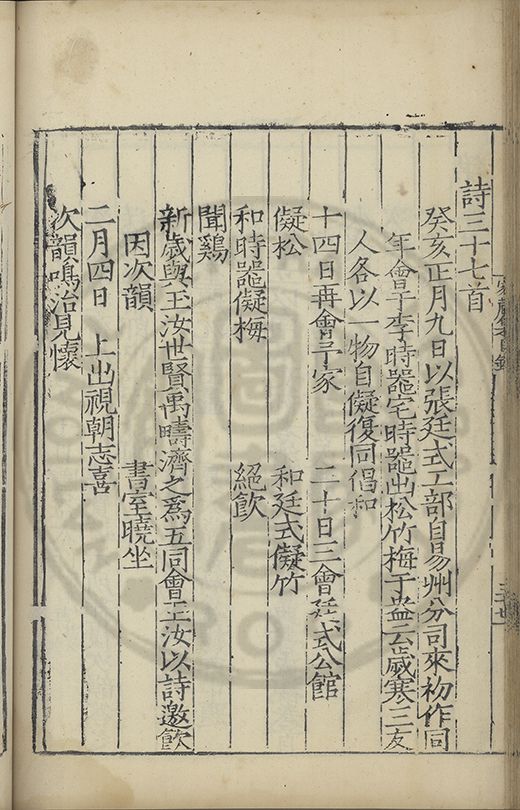 詩三十七首
癸亥正月九日以張廷式工部自易州分司來初作同
年會于李時器宅時器出松竹梅于盆云歲寒三友
人各以一物自儗復同倡和
十四日再會予家　二十日三會廷式公館
儗松　和廷式儗竹
和時器儗梅　絕飲
聞鷄
新歲與玉汝世賢禹疇濟之為五同會玉汝以詩邀飲
因次韻　書室曉坐
二月四日　上出視朝志喜
次韻鳴治見懷